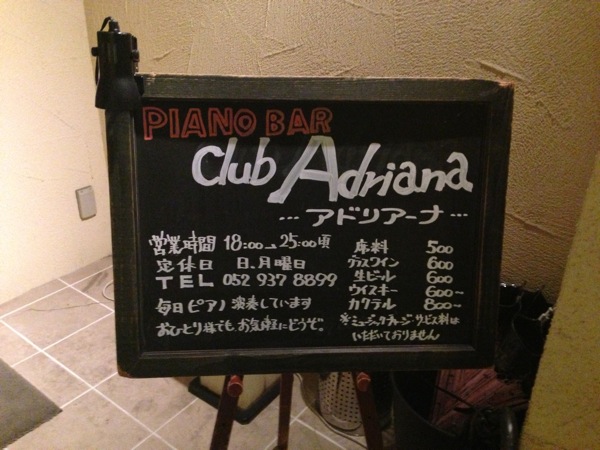 PIANO BAR
Club Adriana
…アドリアーナ…
営業時間 18:00→25:00頃
定休日 日、月曜日
TEL 052 937 8899
毎日ピアノ演奏しています
おひとり様でも、お気軽にどうぞ。
席料 500
グラスワイン 600
生ビール 600
ウイスキー 600~
カクテル 800~
※ミュージックチャージ・サービス料は
いただいておりません